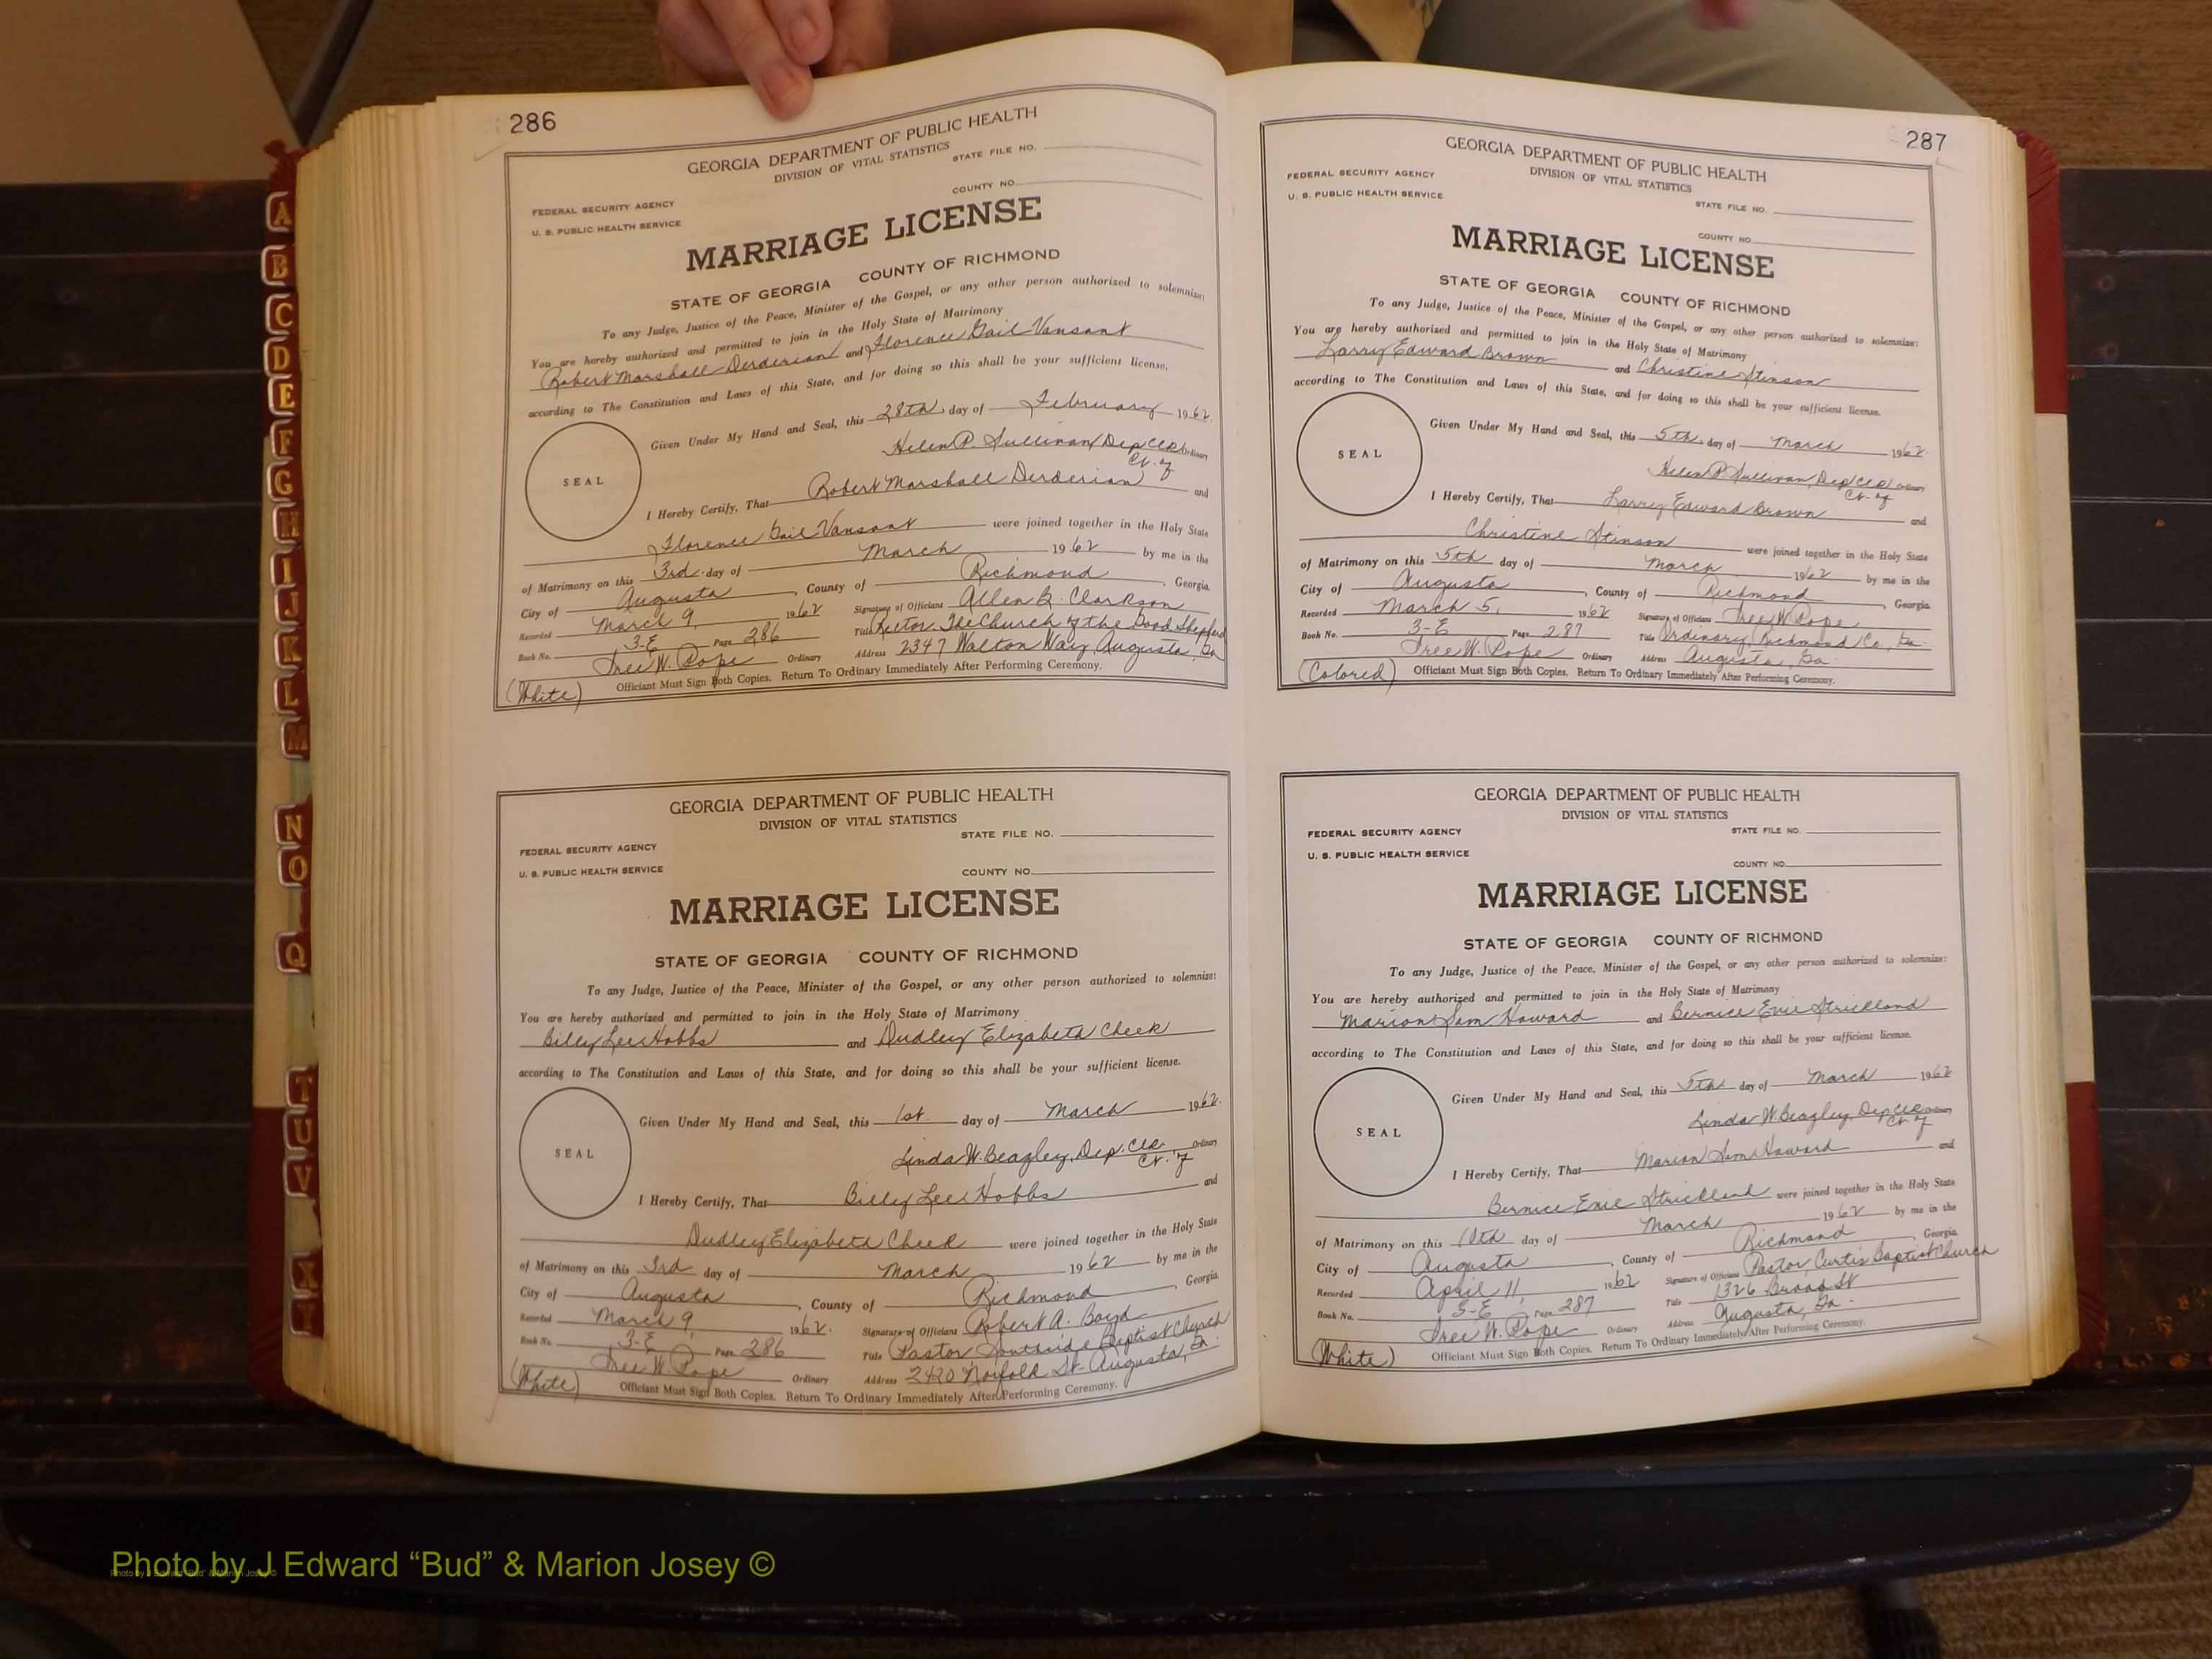 286
GEORGIA DEPARTMENT OF PUBLIC HEALTH
DIVISION OF VITAL STATISTICS
STATE FILE NO.
COUNTY NO.
FEDERAL SECURITY AGENCY
U. S. PUBLIC HEALTH SERVICE
MARRIAGE LICENSE
STATE OF GEORGIA COUNTY OF RICHMOND
To any Judge, Justice of the Peace, Minister of the Gospel, or any other person authorized to solemnize:
You are hereby authorized and permitted to join in the Holy State of Matrimony
Robert Marshall Derderian and Florence Gail Vansant
according to The Constitution and Laws of this State, and for doing so this shall be your sufficient license.
Given Under My Hand and Seal, this 28th day of February 1962.
Helen P. Sullivan, Dep. Clk. Ordinary
Ct. of
SEAL
I Hereby Certify, That Robert Marshall Derderian and
Florence Gail Vansant were joined together in the Holy State
of Matrimony on this 3rd day of March 1962 by me in the
City of Augusta, County of Richmond, Georgia.
Recorded March 9, 1962 Signature of Officiant Allen B. Clarkson
Book No. 3-E Page 286 Title Rector The Church of the Good Shepherd
Tree W. Pope Ordinary Address 2347 Walton Way, Augusta, Ga
(White) Officiant Must Sign Both Copies. Return To Ordinary Immediately After Performing Ceremony.
GEORGIA DEPARTMENT OF PUBLIC HEALTH
DIVISION OF VITAL STATISTICS
STATE FILE NO.
FEDERAL SECURITY AGENCY
U. S. PUBLIC HEALTH SERVICE
COUNTY NO.
MARRIAGE LICENSE
STATE OF GEORGIA COUNTY OF RICHMOND
To any Judge, Justice of the Peace, Minister of the Gospel, or any other person authorized to solemnize:
You are hereby authorized and permitted to join in the Holy State of Matrimony
Billy Lee Hobbs and Dudley Elizabeth Cheek
according to The Constitution and Laws of this State, and for doing so this shall be your sufficient license.
Given Under My Hand and Seal, this 1st. day of March 1962.
Linda W. Beazley, Dep. Clk. Ordinary
Ct. of
SEAL
I Hereby Certify, That Billy Lee Hobbs and
Dudley Elizabeth Cheek were joined together in the Holy State
of Matrimony on this 3rd day of March 1962 by me in the
City of Augusta, County of Richmond, Georgia.
Recorded March 9, 1962. Signature of Officiant Robert A. Boyd
Book No. 3-E Page 286 Title Pastor Southside Baptist Church
Tree W. Pope Ordinary Address 2420 Norfolk St. Augusta, Ga.
(White) Officiant Must Sign Both Copies. Return To Ordinary Immediately After Performing Ceremony.
287
GEORGIA DEPARTMENT OF PUBLIC HEALTH
DIVISION OF VITAL STATISTICS
FEDERAL SECURITY AGENCY
U. S. PUBLIC HEALTH SERVICE
STATE FILE NO.
COUNTY NO.
MARRIAGE LICENSE
STATE OF GEORGIA COUNTY OF RICHMOND
To any Judge, Justice of the Peace, Minister of the Gospel, or any other person authorized to solemnize:
You are hereby authorized and permitted to join in the Holy State of Matrimony
Larry Edward Brown and Christine Stinson
according to The Constitution and Laws of this State, and for doing so this shall be your sufficient license.
Given Under My Hand and Seal, this 5th. day of March 1962.
Helen P. Sullivan, Dep. Clk. Ordinary
Ct. of
SEAL
I Hereby Certify, That Larry Edward Brown and
Christine Stinson were joined together in the Holy State
of Matrimony on this 5th day of March 1962 by me in the
City of Augusta, County of Richmond, Georgia.
Recorded March 5, 1962 Signature of Officiant Tree W. Pope
Book No. 3-E Page 287 Title Ordinary, Richmond Co., Ga.
Tree W. Pope Ordinary Address Augusta, Ga.
(Colored) Officiant Must Sign Both Copies. Return To Ordinary Immediately After Performing Ceremony.
GEORGIA DEPARTMENT OF PUBLIC HEALTH
DIVISION OF VITAL STATISTICS
FEDERAL SECURITY AGENCY
STATE FILE NO.
U. S. PUBLIC HEALTH SERVICE
COUNTY NO.
MARRIAGE LICENSE
STATE OF GEORGIA COUNTY OF RICHMOND
To any Judge, Justice of the Peace, Minister of the Gospel, or any other person authorized to solemnize:
You are hereby authorized and permitted to join in the Holy State of Matrimony
Marion Sam Howard and Bernice Evie Strickland
according to The Constitution and Laws of this State, and for doing so this shall be your sufficient license.
Given Under My Hand and Seal, this 5th day of March 1962
Linda W. Beazley, Dep. Clk. Ordinary
Ct. of
SEAL
I Hereby Certify, That Marion Sam Howard and
Bernice Evie Strickland were joined together in the Holy State
of Matrimony on this day of March 1962 by me in the
City of Augusta, County of Richmond, Georgia
Recorded April 11, 1962 Signature of Officiant Pastor, Curtis Baptist Church
Book No. 3-E Page 287 Title 1326 Broad St
Tree W. Pope Ordinary Address Augusta, Ga.
(White) Officiant Must Sign Both Copies. Return To Ordinary Immediately After Performing Ceremony.
A
B
C
D
E
F
G
H
I
J
K
L
M
N
O
Q
T
U
V
X
Y
Photo by J Edward “Bud” & Marion Josey ©
Photo by J Edward “Bud” & Marion Josey ©